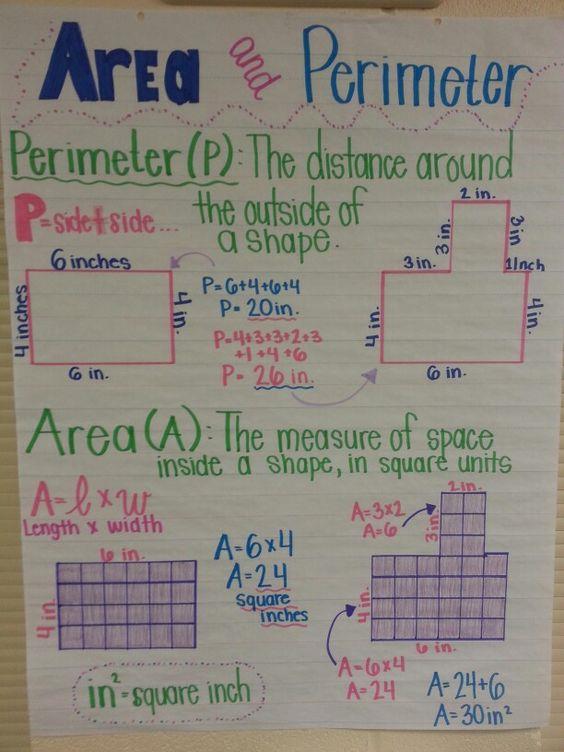 Area and Perimeter
Perimeter (P): The distance around
the outside of
a shape.
P=side+side...
6 inches
4 inches
4 in.
6 in.
P=6+4+6+4
P=20in.
P=4+3+3+2+3
+1+4+6
P=26 in.
2 in.
3 in.
3 in
3 in.
1 Inch
4 in.
4 in.
6 in.
Area (A): The measure of space
inside a shape, in square units
A=l x w
Length x width
6 in.
4 in.
A=6x4
A=24
square
inches
A=3x2
A=6
2 in.
3 in.
4 in.
6 in.
A=6x4
A=24
A=24+6
A=30in²
in²=square inch